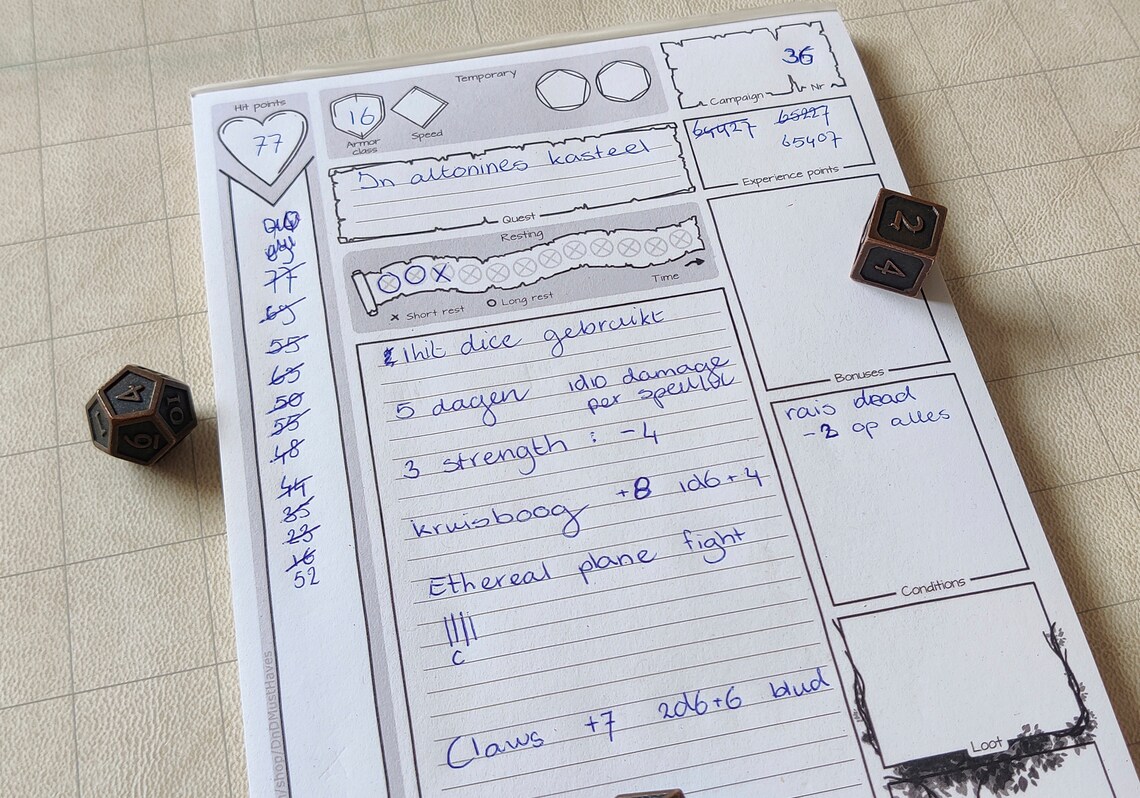 Hit points
77
77
69
55
65
50
55
48
44
35
23
16
52
Temporary
16
Armor
class
Speed
In altonines kasteel
Quest
Resting
Time
x Short rest
O Long rest
1 hit dice gebruikt
5 dagen 1d10 damage
per spell lvl
3 strength : -4
kruisboog +8 1d6+4
Ethereal plane fight
||||
C
Claws +7 2d6+6 blud
36
Campaign
Nr
64927 65227
65407
Experience points
Bonuses
rais dead
op alles
Conditions
Loot
/shop/DnDMustHaves
2
4
4
10